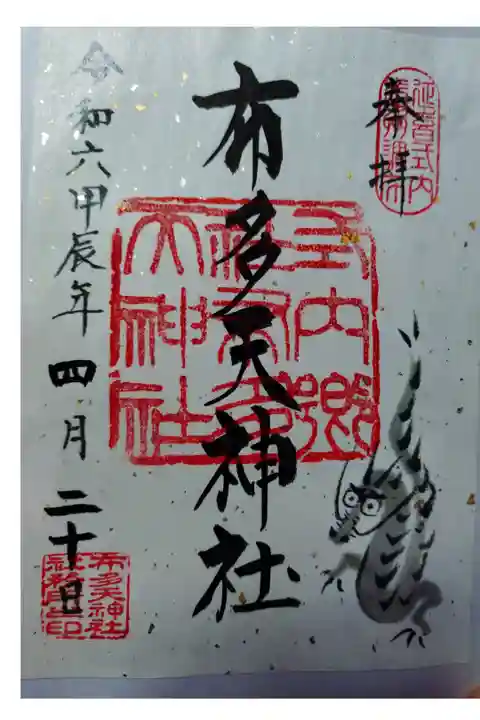 奉拝
延喜式内
布多天神社
式内郷
社布多
天神社
令和六甲辰年四月二十日
布多天神社
社務所之印